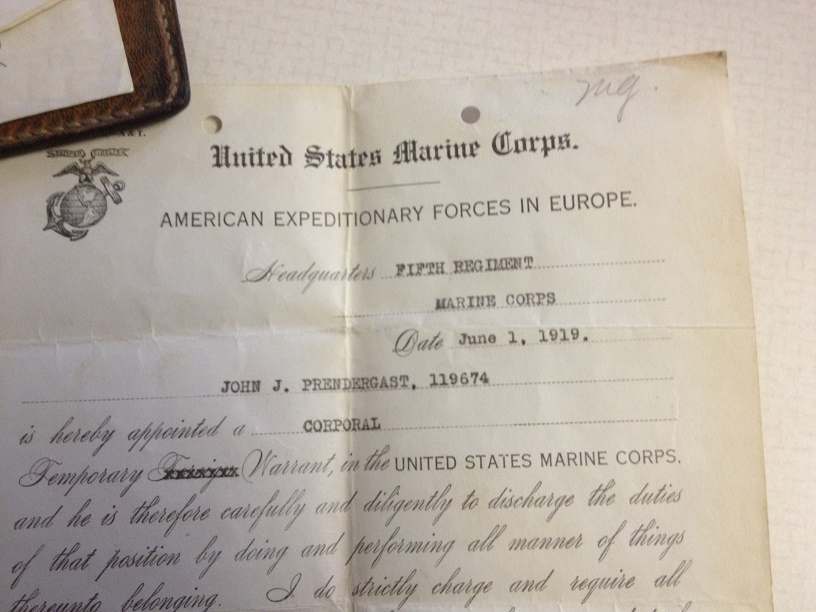 mg.
United States Marine Corps.
AMERICAN EXPEDITIONARY FORCES IN EUROPE.
Headquarters FIFTH REGIMENT
MARINE CORPS
Date June 1, 1919.
JOHN J. PRENDERGAST, 119674
is hereby appointed a CORPORAL
Temporary Warrant, in the UNITED STATES MARINE CORPS.
and he is therefore carefully and diligently to discharge the duties
of that position by doing and performing all manner of things
thereunto belonging. I do strictly charge and require all